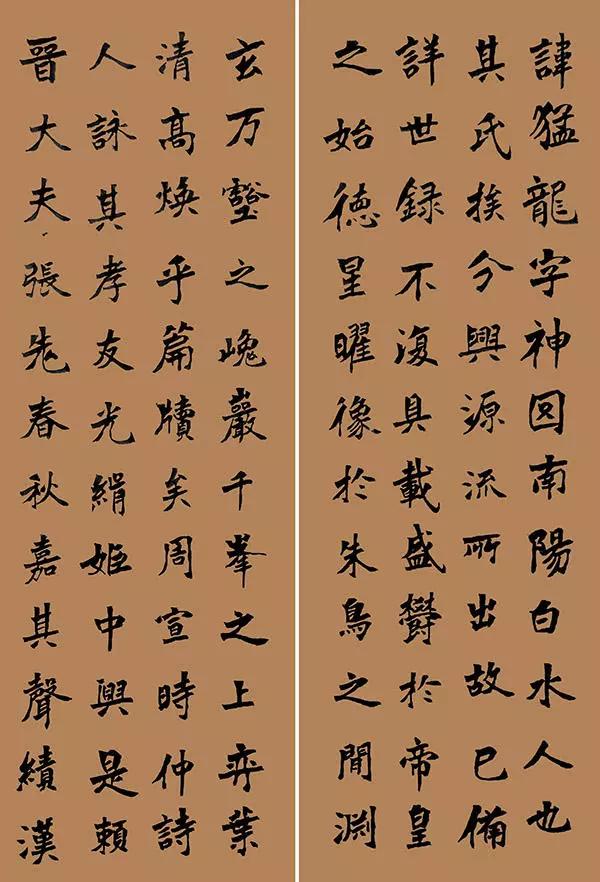 諱猛龍字神冏南陽白水人也
其氏族分興源流所出故已備
詳世録不復具載盛欝於帝皇
之始德星曜像於朱鳥之間淵
玄万壑之巍巖千峯之上弈葉
清高煥乎篇牘矣周宣時仲詩
人詠其孝友光緝姬中興是賴
晉大夫張老春秋嘉其聲績漢